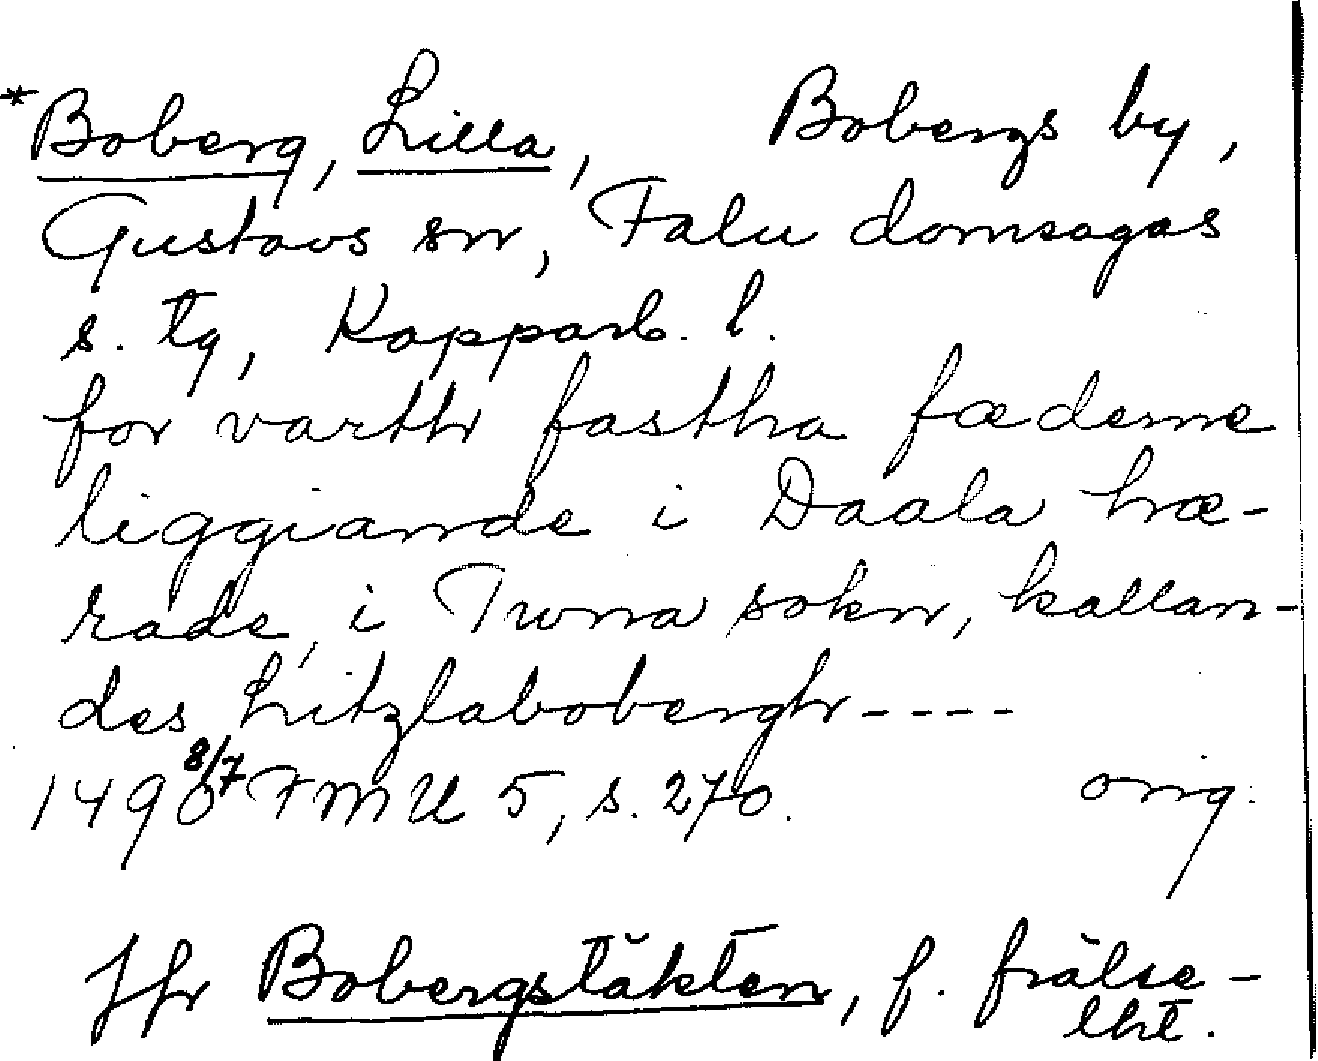 *Boberg, Lilla, Bobergs by,
Gustavs sn, Falu domsagas
s. tg, Kopparb. l.
for vartth fastha fæderne
liggiande i Daala hæ-
rade, i Twna sokn, kallan-
des Litzlabobergh ----
1490 8/7 FMU 5, s. 270. orig.
Jfr Bobergstäkten, f. frälse-
lht.